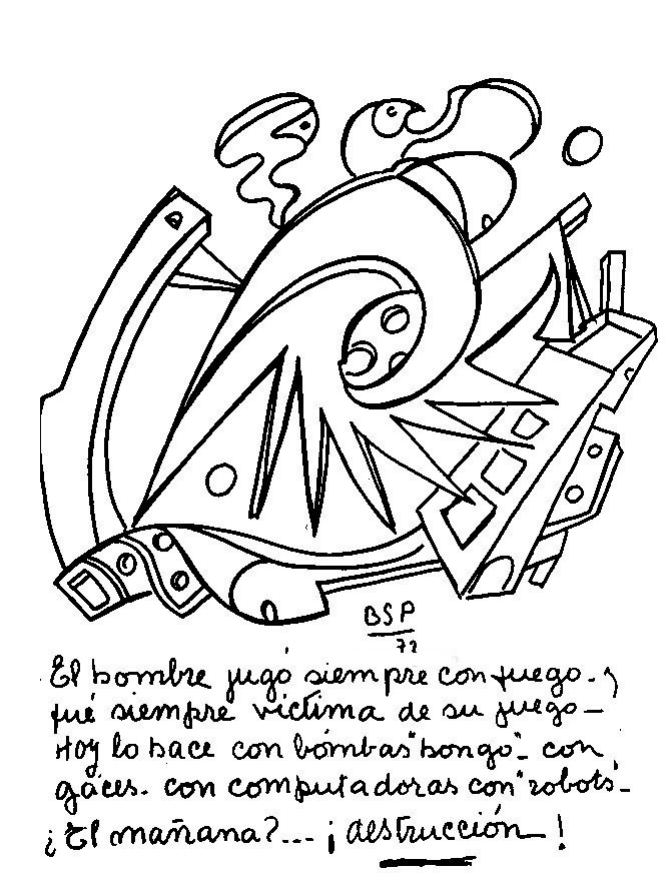 BSP
72
El hombre jugó siempre con fuego. y
fué siempre víctima de su juego —
Hoy lo hace con bombas "hongo" - con
gáces. con computadoras con "robots" -
¿El mañana?... ¡destrucción!